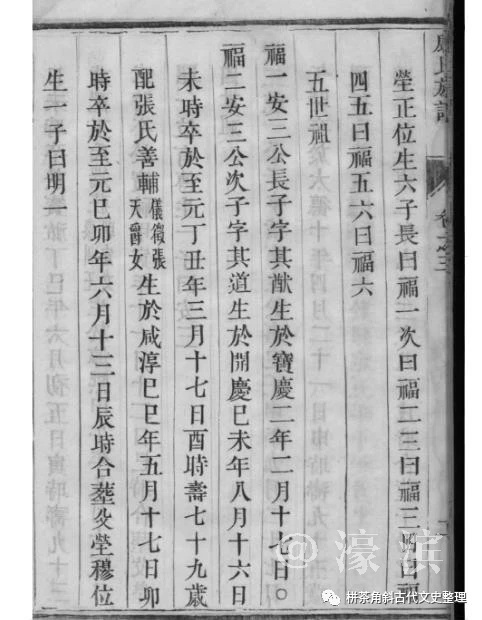 氏族譜 卷之三
塋正位生六子長曰福一次曰福二三曰福三四曰福
四五曰福五六曰福六
五世祖
福一安三公長子字其猷生於寶慶二年二月十七日○
福二安三公次子字其道生於開慶巳未年八月十六日
未時卒於至元丁丑年三月十七日酉時壽七十九歲
配張氏善輔儀徵張天爵女生於咸淳巳巳年五月十七日卯
時卒於至元巳卯年六月十三日辰時合葬父塋穆位
生一子曰明一
@濠滨
栟茶角斜古代文史整理